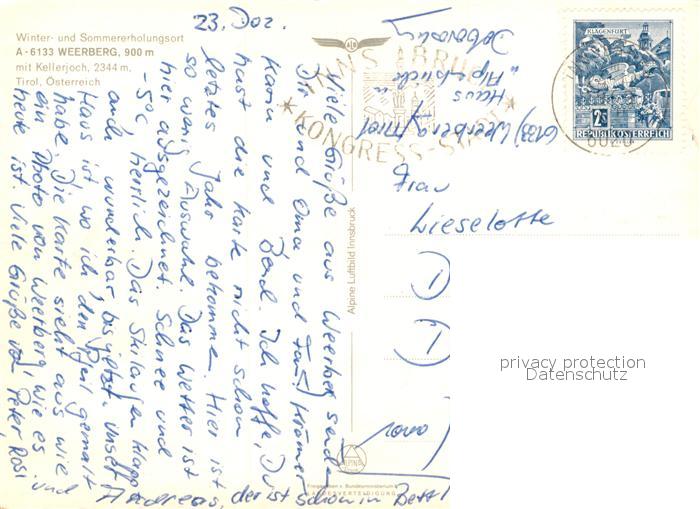 Winter- und Sommererholungsort
A-6133 WEERBERG, 900 m
mit Kellerjoch, 2344 m,
Tirol, Österreich
23. Dez.
Viele Grüße aus Weerberg sendet
Dir und Oma und Fam. Krämer
Karin und Bernd. Ich hoffe, Du
hast die Karte nicht schon
letztes Jahr bekommen. Hier ist
so wenig Auswahl. Das Wetter ist
hier ausgezeichnet. Schnee und
-5°C herrlich. Das Skilaufen klappt
auch wunderbar bis jetzt. Unser
Haus ist wo ich den Pfeil gemalt
habe. Die Karte sieht aus wie
ein Photo von Weerberg, wie es
heute ist. Viele Grüße von Peter, Rosi und
Andreas, der ist schon in Bett!
Haus
"Alpenblick"
(6133) Weerberg / Tirol
INNSBRUCK
KONGRESS-STADT
KLAGENFURT
2S
REPUBLIK ÖSTERREICH
6020
Frau
Lieselotte
Alpine Luftbild Innsbruck
ALPINE
Freigegeben v. Bundesministerium f.
LANDESVERTEIDIGUNG
privacy protection
Datenschutz